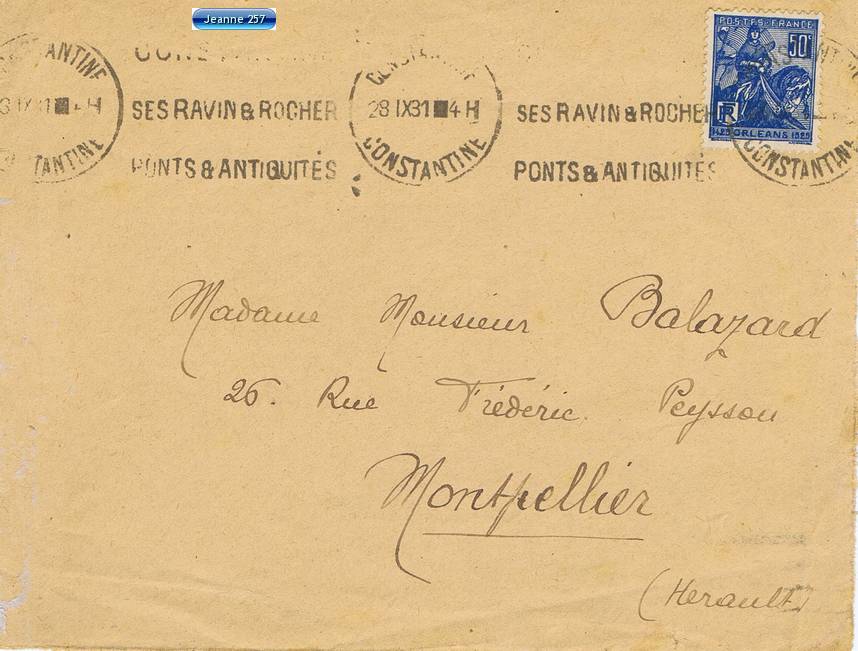 Jeanne 257
POSTES FRANCE
50c
RF
1429 ORLEANS 1929
CONSTANTINE
CONSTANTINE
SES RAVIN & ROCHER
PONTS & ANTIQUITÉS
CONSTANTINE
28 IX31 4 H
CONSTANTINE
SES RAVIN & ROCHER
PONTS & ANTIQUITÉS
CONSTANTINE
Madame Monsieur Balazard
26. Rue Frédéric. Peysson
Montpellier
(Herault)